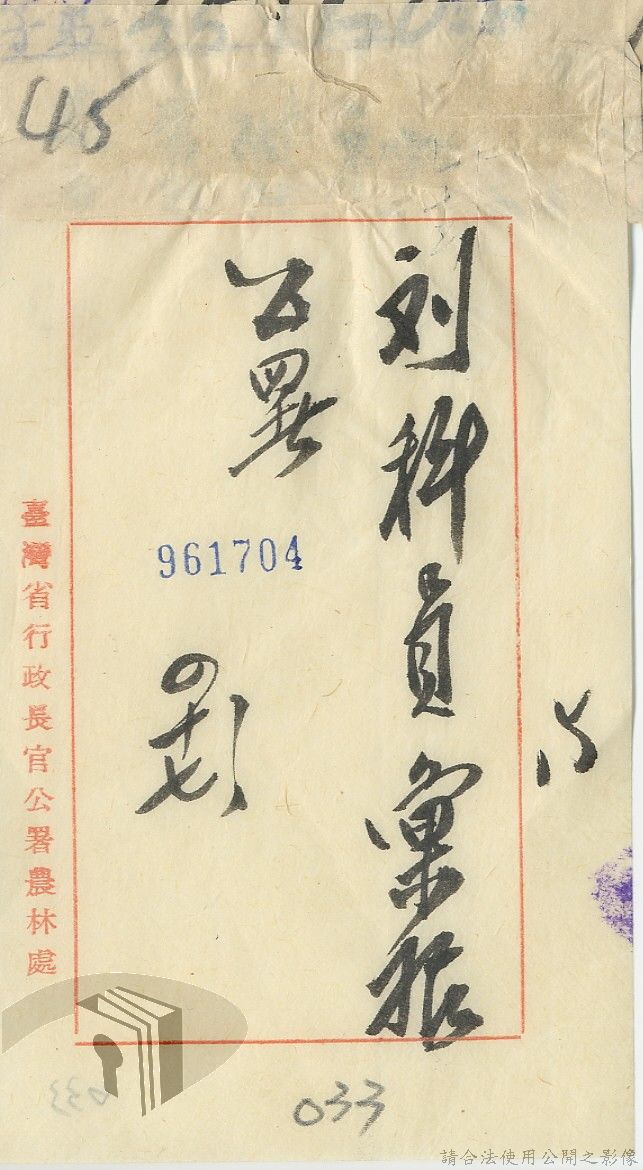 45
刘科員彙
公署
961704
臺灣省行政長官公署農林處
033
請合法使用公開之影像